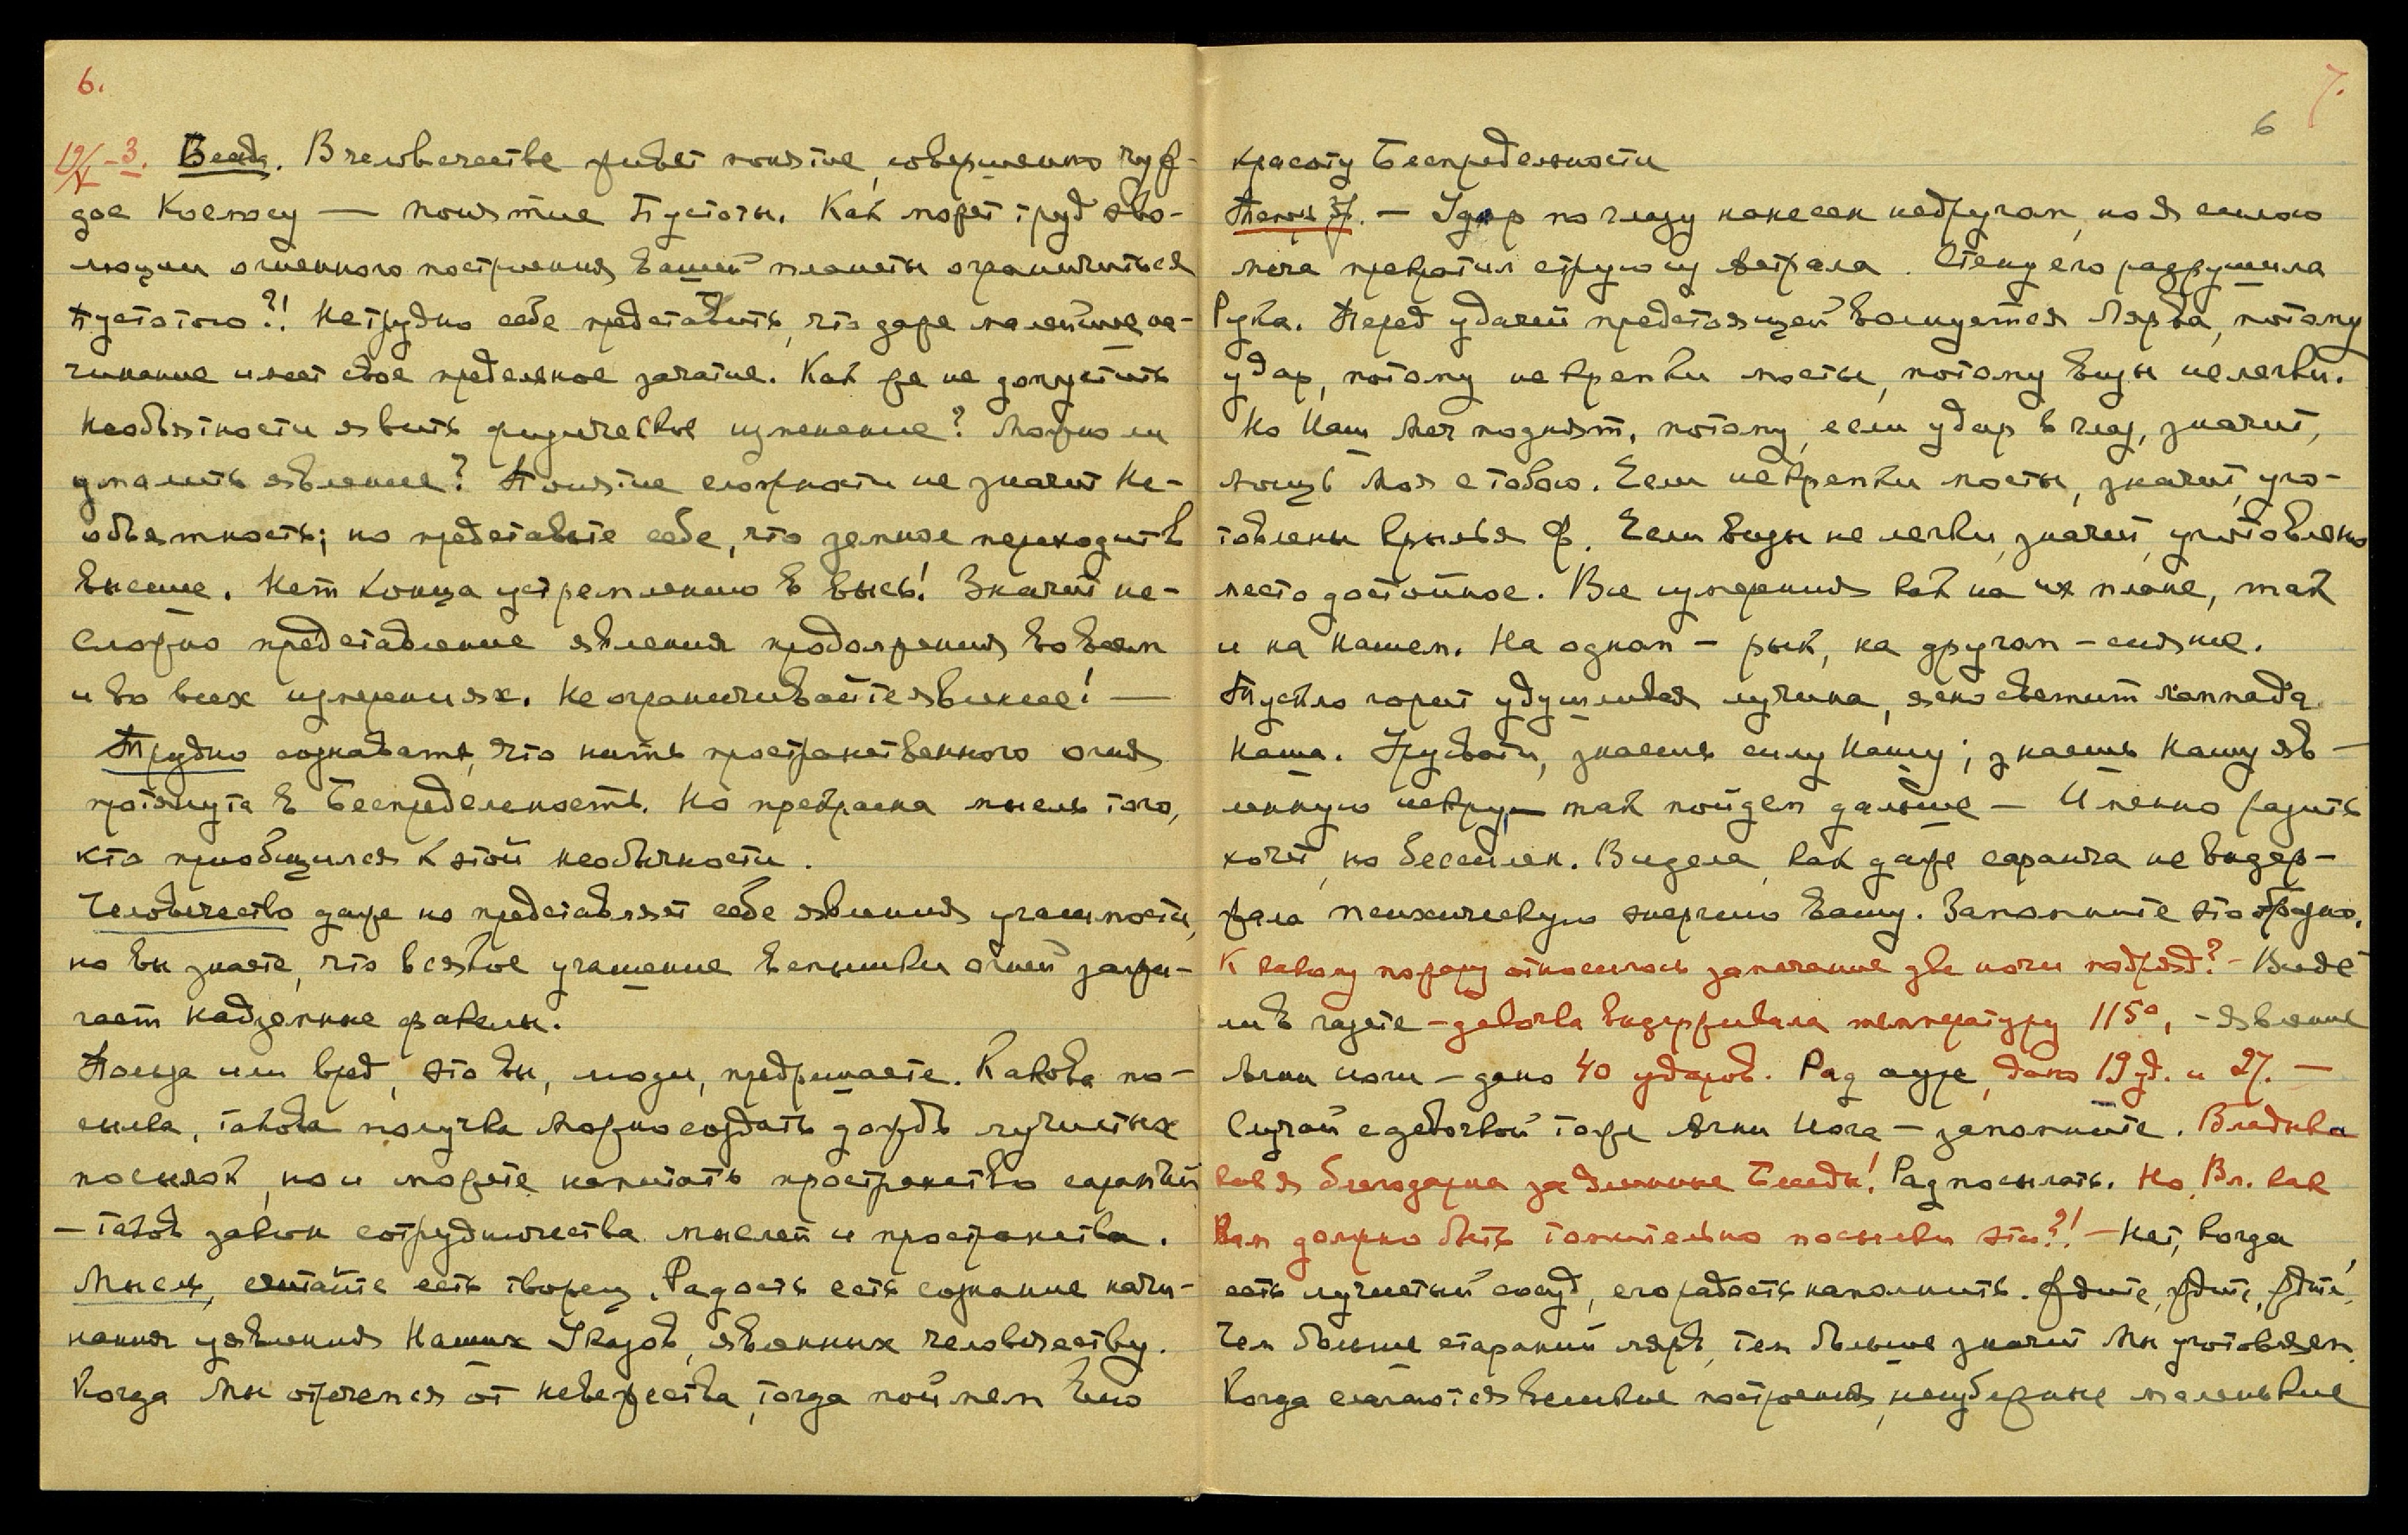 6.
19/X – 3. Беседа. В человечестве живет понятие, совершенно чуж-
дое Космосу — понятие Пустоты. Как может труд эво-
люции огненного построения вашей планеты ограничиться
Пустотою?! Нетрудно себе представить, что даже малейшее на-
чинание имеет свое предельное зачатие. Как же не допустить
Необъятности явить физическое изменение? Можно ли
умалить явление? Понятие сложности не значит Не-
объятность; но представьте себе, что земное переходит в
высшее. Нет конца устремлению в высь! Значит не-
сложно представление явления продолжения во всем
и во всех измерениях. Не ограничивайте явление! —
Трудно сознавать, что нить пространственного огня
протянута в Беспредельность. Но прекрасна мысль того,
кто приобщился к этой необычности.
Человечество даже не представляет себе явления учащности,
но вы знаете, что всякое учащение вспышки огней зажи-
гает надземные факелы.
Польза или вред, это вы, люди, предрешаете. Какова по-
сылка, такова получка можно создать дождь лучистых
посылок, но и можете напитать пространство саранчой
– таков закон сотрудничества мыслей и пространства.
Мысль, считайте есть творец. Радость есть сознание начи-
нания уявления Наших Указов, явленных человечеству.
Когда мы отречемся от невежества, тогда поймем Его
7.
6
красоту Беспредельности
— Удар по глазу нанесен недругам, но Я силою
меча превратил струю у астрала. Стену его разрушила
Рука. Перед удачей предстоящей волнуется Лярва, потому
удар, потому некрепки мосты, потому виды нелегки.
Но Наш Меч поднят, потому, если удар в глаз, значит,
мощь Моя с тобою. Если некрепки мосты, значит, уго-
товлены крылья Ф. Если виды не легки, значит, уготовлено
место достойное. Все измерения как на их плане, так
и на Нашем. На одном – рык, на другом – сияние.
Тускло горит удушливая лучина, ясно светит лампада
Наша. Урусвати, знаешь силу Нашу; знаешь Нашу яв-
ленную искру, — так пойдем дальше — Именно разить
хочет, но бессилен. Видела, как даже саранча не выдер-
жала психическую энергию вашу. Запомните это
К какому пожару относилось замечание две ночи подряд? – Виде
ли в газете – девочка выдерживала температуру 115°, – явление
Агни Йоги – дано 40 ударов. Рад ауре, дано 19 уд. и 27. —
Случай с девочкой тоже Агни Йога – запомните. Владыка
как я благодарна за длинные Беседы! Рад посылать. Но, Вл. как
Вам должно быть томительно посылки эти?! — Нет, когда
есть лучистый сосуд, его радость наполнить. Ждите, ждите, ждите,
Чем больше стараний лярв, тем больше значит Мы уготовляем.
Когда слагаются великие построения, неизбежные маленькие